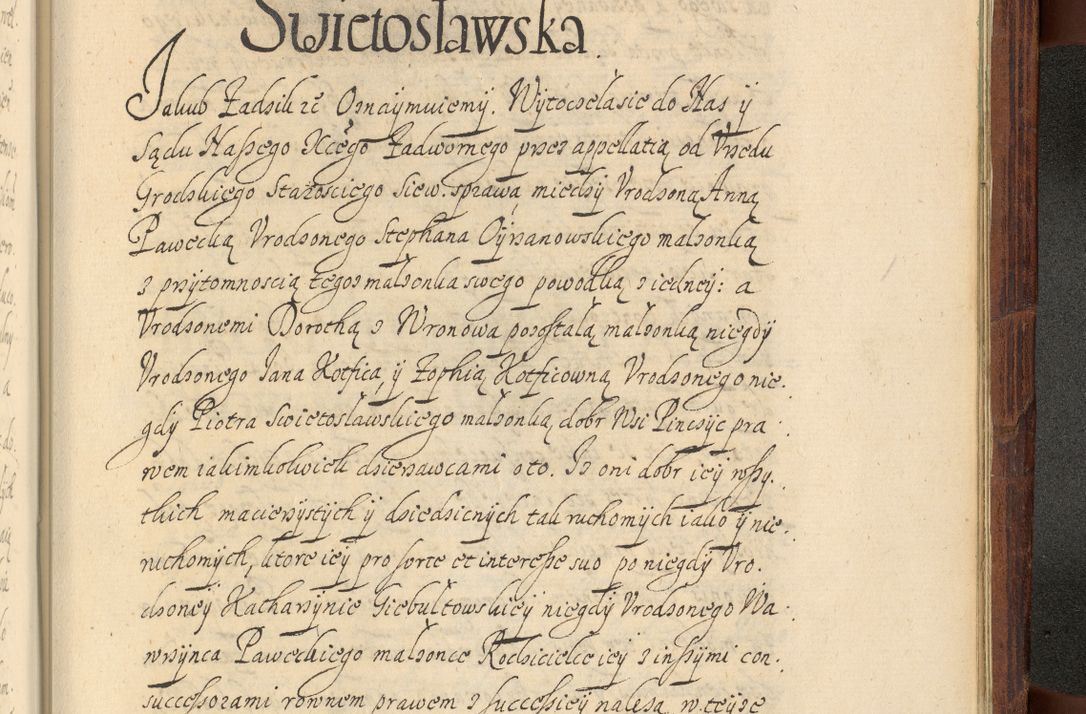 Swietosławska
Jakub Zadzik etc Oznaymuiemÿ. Wÿtoczelasie do Nas ÿ
Sądu Naszego Xcego Zadwornego przez appellatią od Vrzedu
Grodzkiego Starosciego Siew: sprawa miedzÿ Vrodzoną Anną
Pawecką Vrodzonego Stephana Oÿrzanowskiego małzonką
z przÿtomnoscią tegoz małzonka swego powodką z iedneÿ: a
Vrodzonemi Dorothą z Wronowa pozostałą małzonką niegdÿ
Vrodzonego Jana Kotfica, ÿ Zophią Kotficowną Vrodzonego nie.
gdÿ Piotra Swietosławskiego małzonką, dobr Wsi Pinczÿc pra.
wem iakimkolwiek dzierzawcami o to. Iz oni dobr ieÿ wszÿ.
tkich macierzÿstÿch ÿ dziedzicznÿch tak ruchomÿch iako ÿ nie.
ruchomÿch, ktore ieÿ pro sorte et interesse suo po niegdÿ Vro.
dzoneÿ Katharzÿnie Giebułtowskieÿ niegdÿ Vrodzonego Wa.
wrzÿnca Paweckiego małzonce Rodzicielce ieÿ z inszÿmi con.
successorami rownem prawem z successieÿ nalezą w teÿze